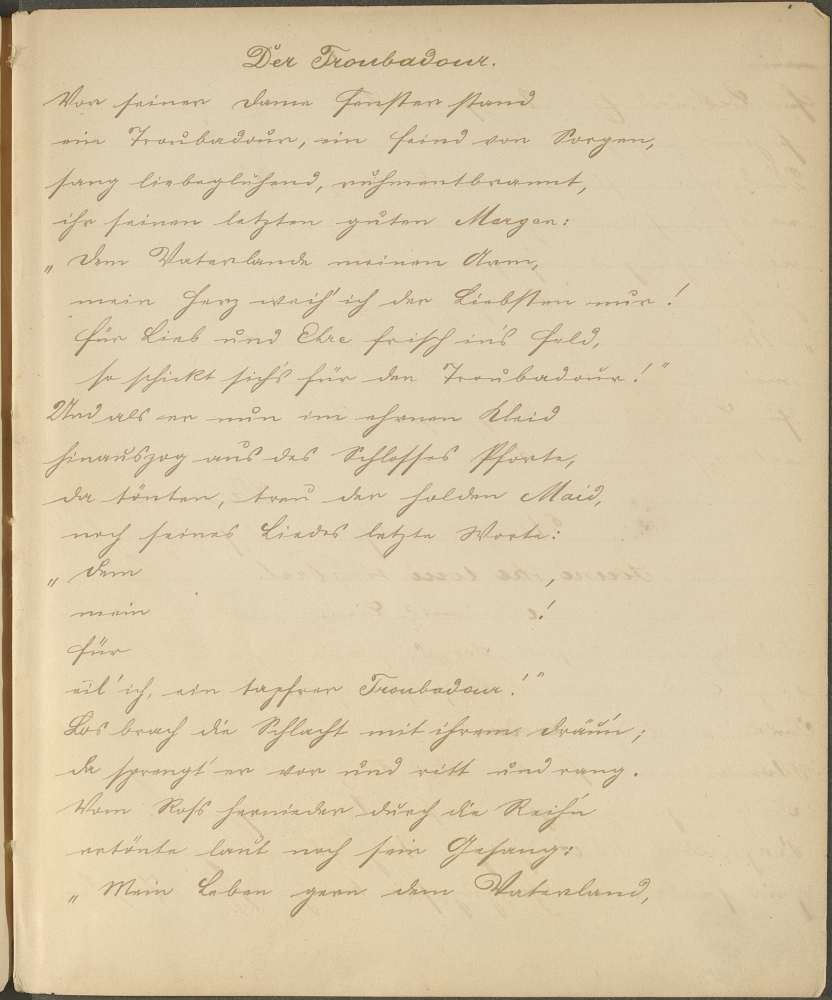 Der Troubadour.
Vor seiner Dame Fenster stand
ein Troubadour, ein Feind von Sorgen,
sang liebeglühend, ruhmentbrannt,
ihr seinen letzten guten Morgen:
„Dem Vaterlande meinen Arm,
mein Herz weih' ich der Liebsten nur!
für Lieb und Ehre frisch ins Feld,
so schickt sich's für den Troubadour!"
Und als er nun im ehrnen Kleid
hinauszog aus des Schlosses Pforte,
da tönten, treu der holden Maid,
noch seines Liedes letzte Worte:
„Dem ,
mein !
für
eil' ich, ein tapfrer Troubadour!"
Los brach die Schlacht mit ihrem Dräun;
da sprengt' er vor und ritt und rang.
Vom Roß hernieder durch die Reih'n
ertönte laut noch sein Gesang:
„Mein Leben gern dem Vaterland,